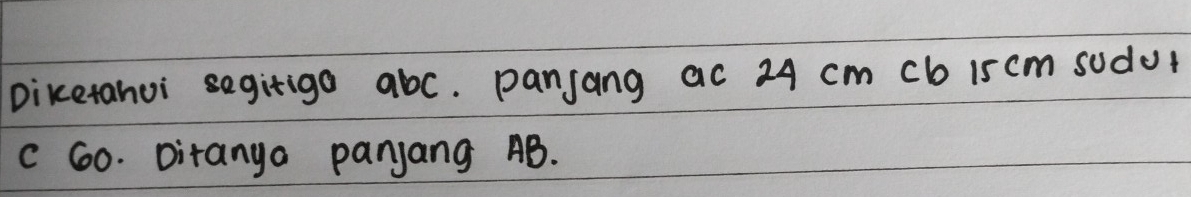 Diketahui segitiga abc. panjang ac 24 cm cb 15 cm sudut
C 60. Ditanya panjang AB.